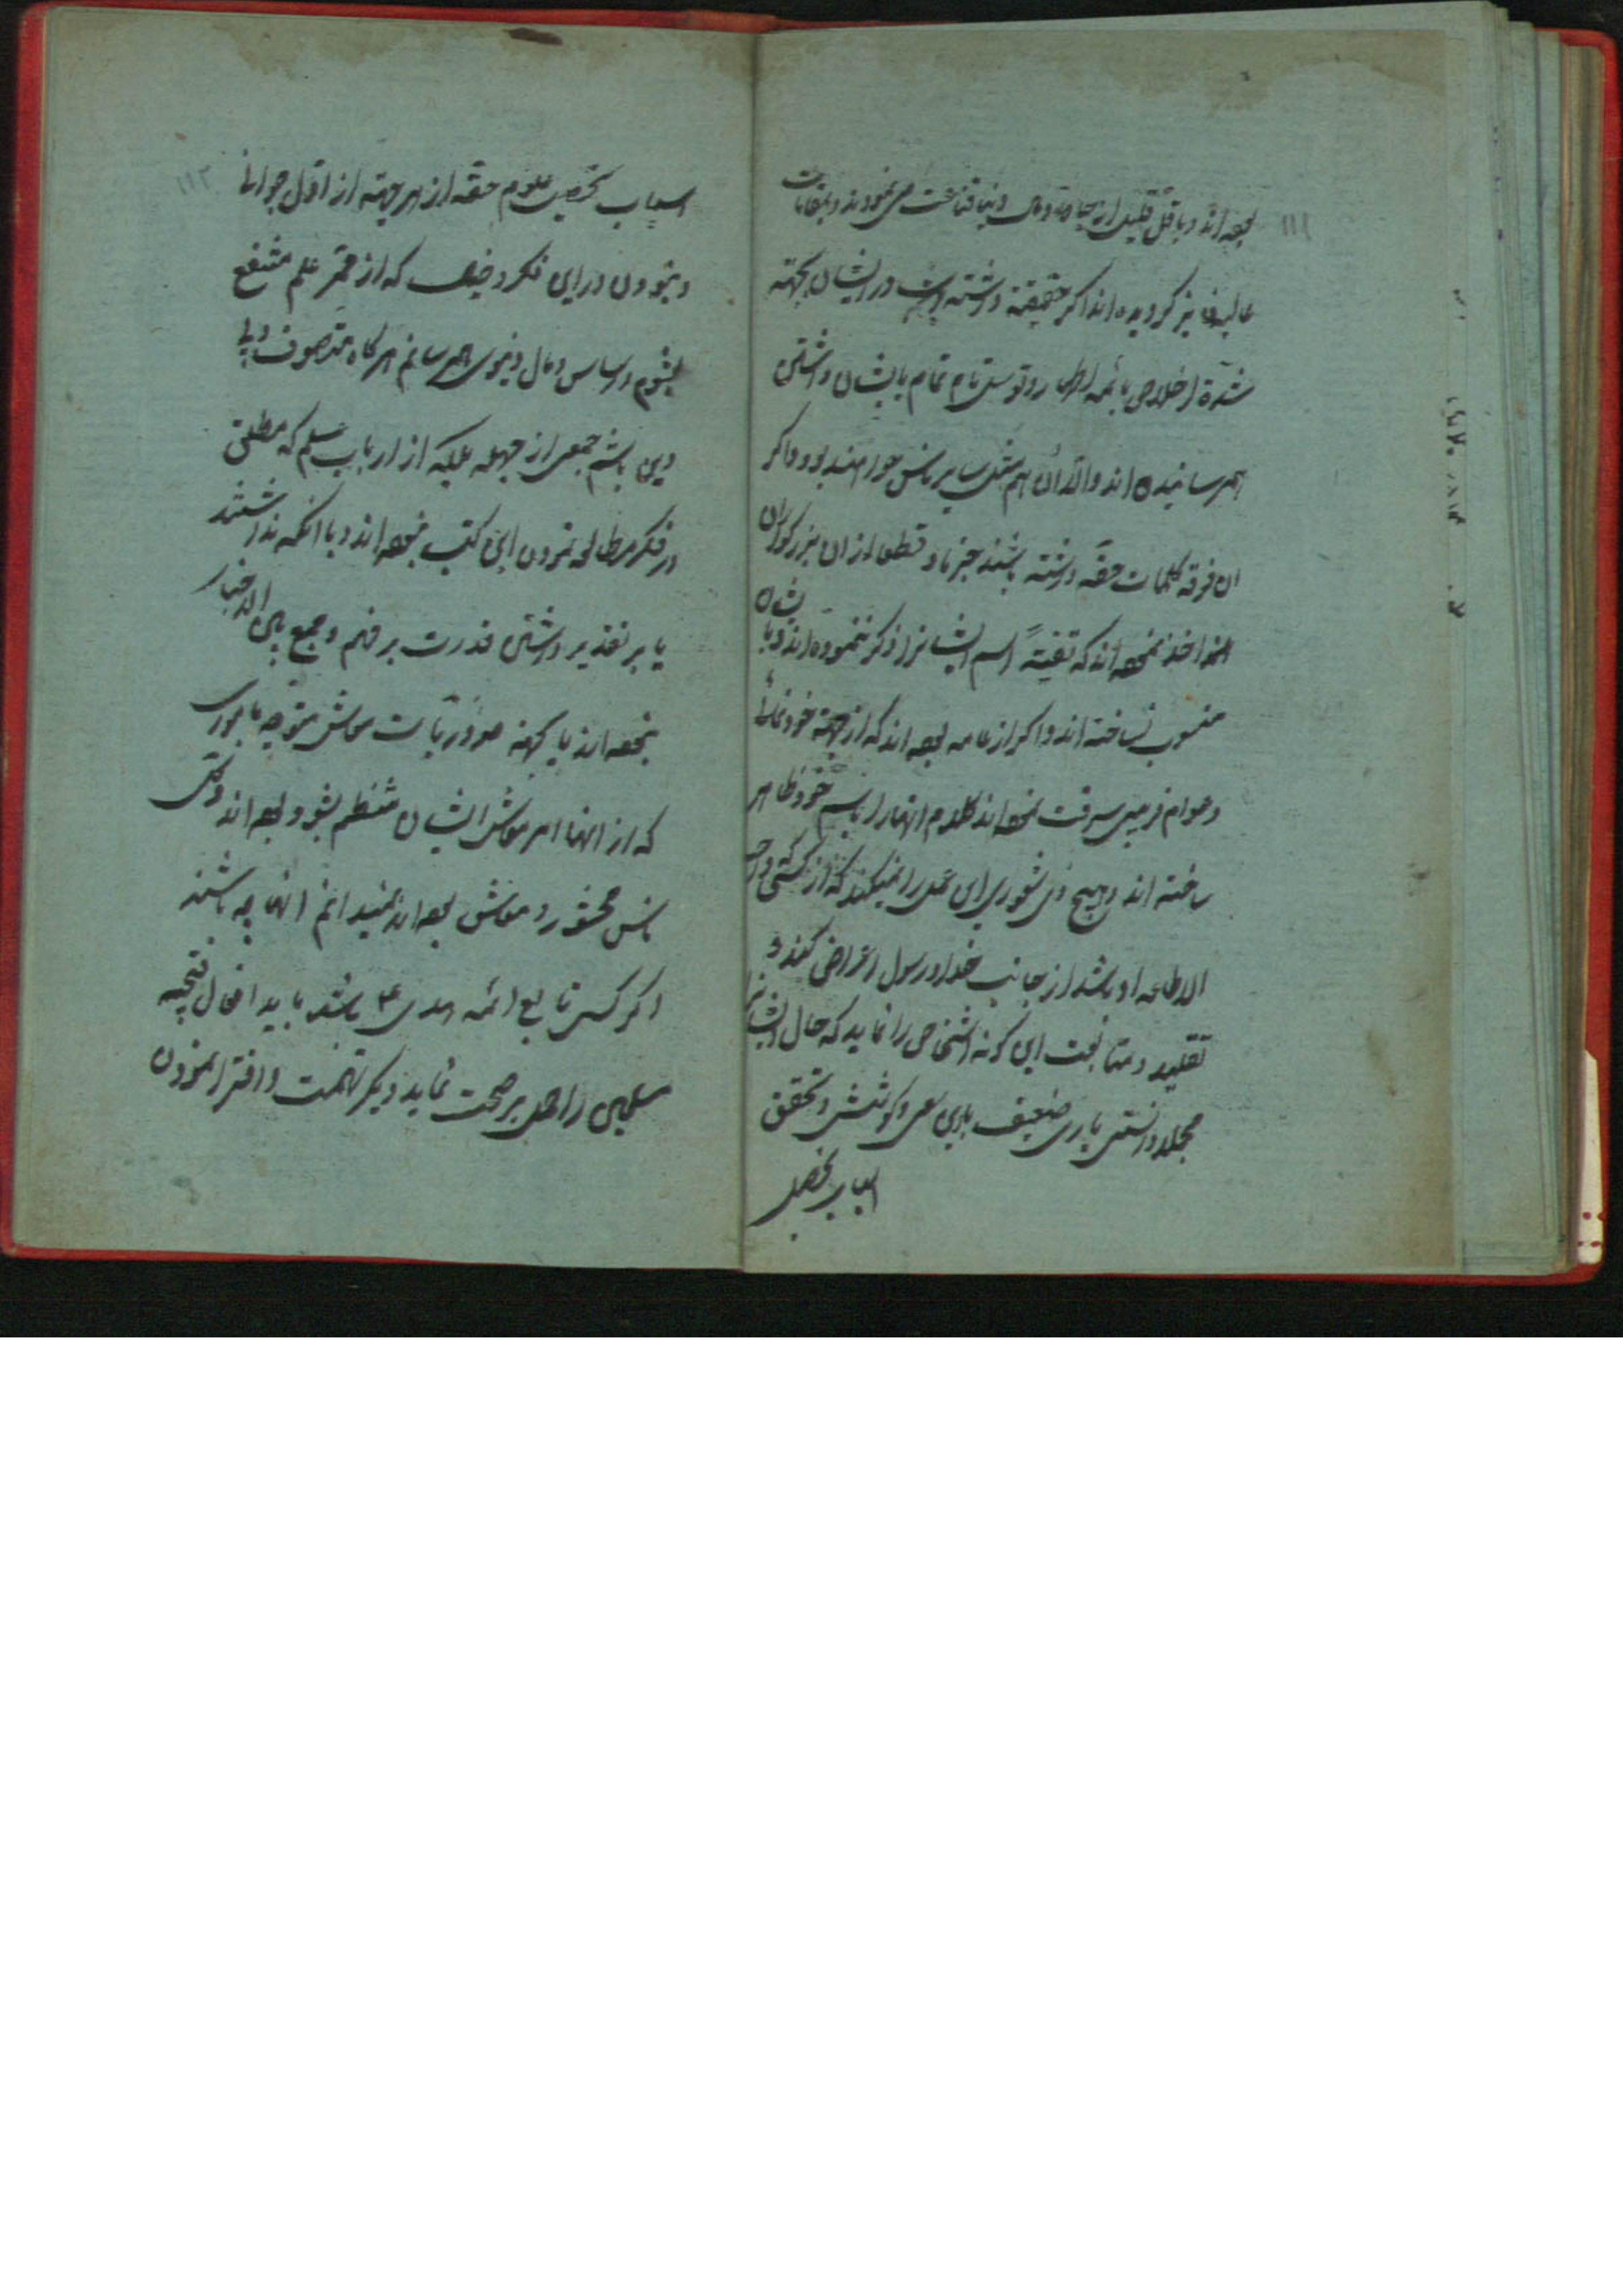 ۱۱۱
بوده اند و باقل قلیل از حیات دنیا قناعت می نموده اند و بمقامات
عالیه نیز کردیده اند اکر حقیقة داشته باشند در ایشان بجهته
شدة اخلاص بائمه اطهار و توسل تام تمام بایشان داشتن
بهمرسانیده اند والا آن هم مثل سایر ناس خواهند بود و اکر
آن فرقه کلمات حقه داشته باشند جزما و قطعا از آن بزرکواران
اخذ نموده اند که تقیة اسم ایشانرا ذکر ننموده اند و بایشان
منسوب نساخته اند و اکر از عامه بوده اند که از جهته خودنمائی
و عوام فریبی سرقت نموده اند کلام آنها را باسم خود ظاهر
ساخته اند و هیچ ذی شعوری این عمل را نمیکند که از کسی که واجب
الاطاعه او باشد از جانب خدا و رسول اعراض کند و
تقلید و متابعت این کونه اشخاص را نماید که حال ایشانرا
مجملا دانستی باری ضعیف باین سعی و کوشش و تحقق
اسباب تحصیل
۱۱۲
اسباب تحصیل علوم حقه از هر جهته از اول جوانی
و نبودن در این فکر و خیال که از ممر علم منتفع
بشوم در اساس و مال دنیوی بهم رسانم هرکاه متصوف و بی
دین باشم جمعی از جهله بلکه از ارباب علم که مطلق
در فکر مطالعه نمودن این کتب نبوده اند و با آنکه نداشتند
یا بر تقدیر داشتن قدرت بر فهم و جمع بین الاخبار
نبوده اند یا بجهته ضروریات معاش متوجه باموری
که از آنها امر معاش ایشان منتظم بشود بوده اند و کی
ناس محشور و معاش بوده اند نمیدانم آنها چه باشند
اکر کسی تابع ائمه هدی ع باشد باید افعال قبیحه
مسلمین را حمل بر صحت نماید دیکر تهمت و افترا نمودن